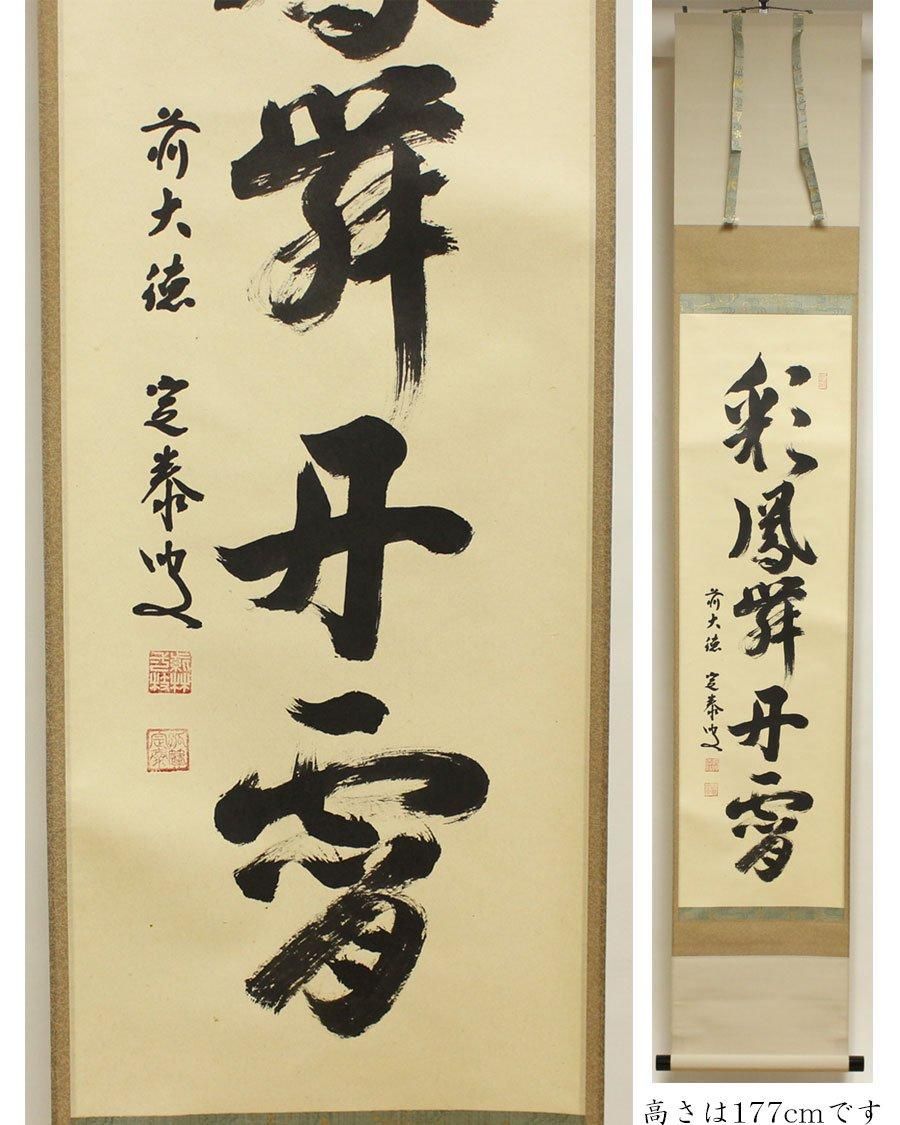 舞丹霄
前大徳 定泰叟
彩鳳舞丹霄
前大徳 定泰叟
高さは177cmです